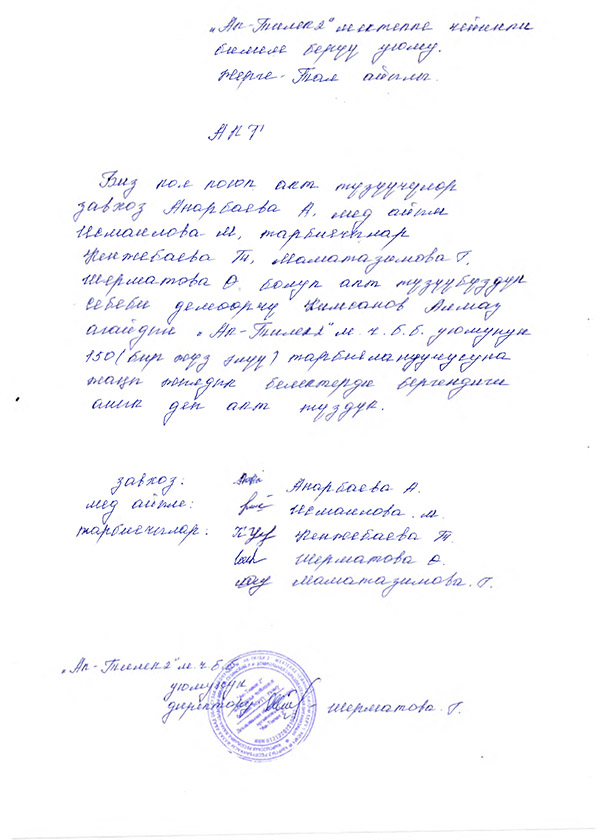 „Ак-Тилек 2" мектепке чейинки
билим берүү уюму.
Жерге-Тал айылы.
АКТ
Биз кол коюп акт түзүүчүлөр
завхоз Анарбаева А, мед айым
Исмаилова М, тарбиячылар
Кенжебаева Т, Маматазимова Г,
Шерматова Ө. болуп акт түзүүбүздүн
себеби демөөрчү Алмаз
агайдын „Ак-Тилек 2" м.ч.б.б. уюмунун
150 (бир жүз элүү) тарбиялануучусуна
жаңы жылдык белектерди бергендиги
анык деп акт түздүк.
завхоз: Анарбаева А.
мед айым: Исмаилова. М.
тарбиячылар: Кенжебаева Т.
Шерматова Ө.
Маматазимова. Г.
„Ак-Тилек 2" м.ч.б.
уюмунун
директору Шерматова. Г.